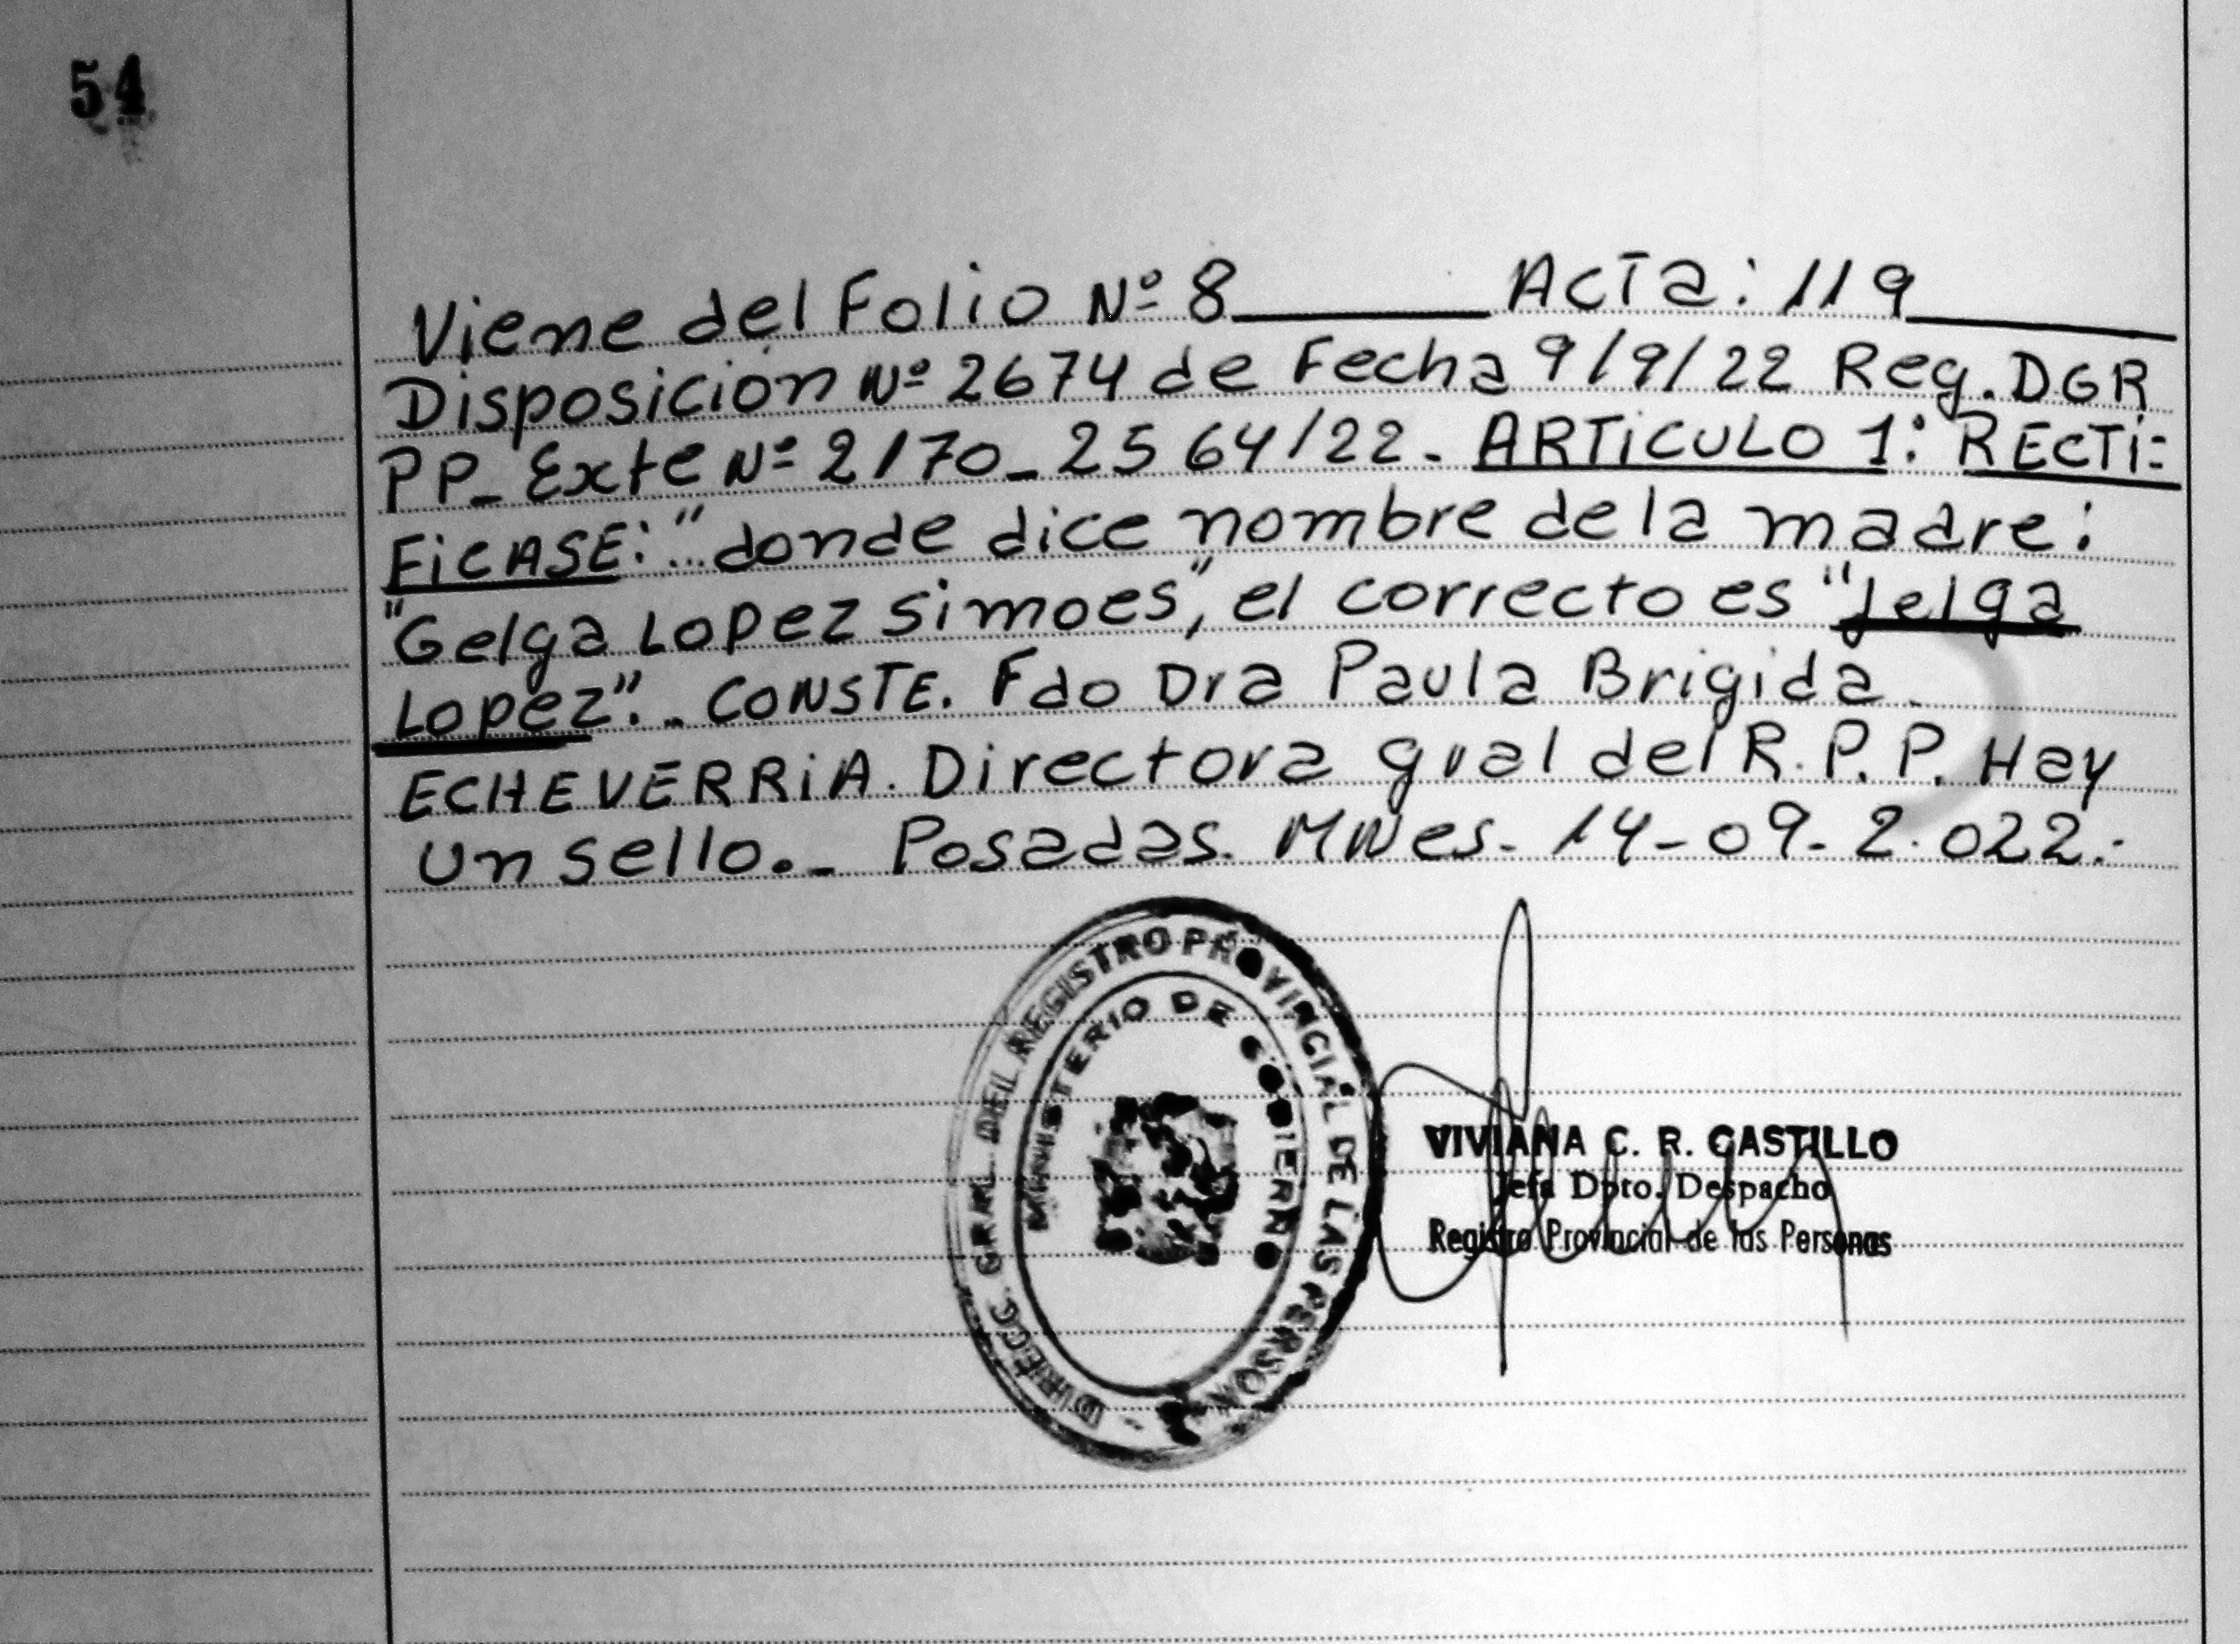 54
Viene del Folio Nº 8 Acta: 119
Disposición Nº 2674 de Fecha 9/9/22 Reg. DGR
PP_ Exte Nº 2170_2564/22. ARTICULO 1: RECTI=
FICASE: "donde dice nombre de la madre:
"Gelga Lopez Simoes", el correcto es "Jelga
Lopez". CONSTE. Fdo Dra Paula Brigida
ECHEVERRIA. Directora gral del R.P.P. Hay
un sello._ Posadas. MNes- 14-09-2.022.-
DIRECC. GRAL. DEL REGISTRO PROVINCIAL DE LAS PERSONAS
MINISTERIO DE GOBIERNO
VIVIANA C. R. CASTILLO
Jefa Dpto. Despacho
Registro Provincial de las Personas